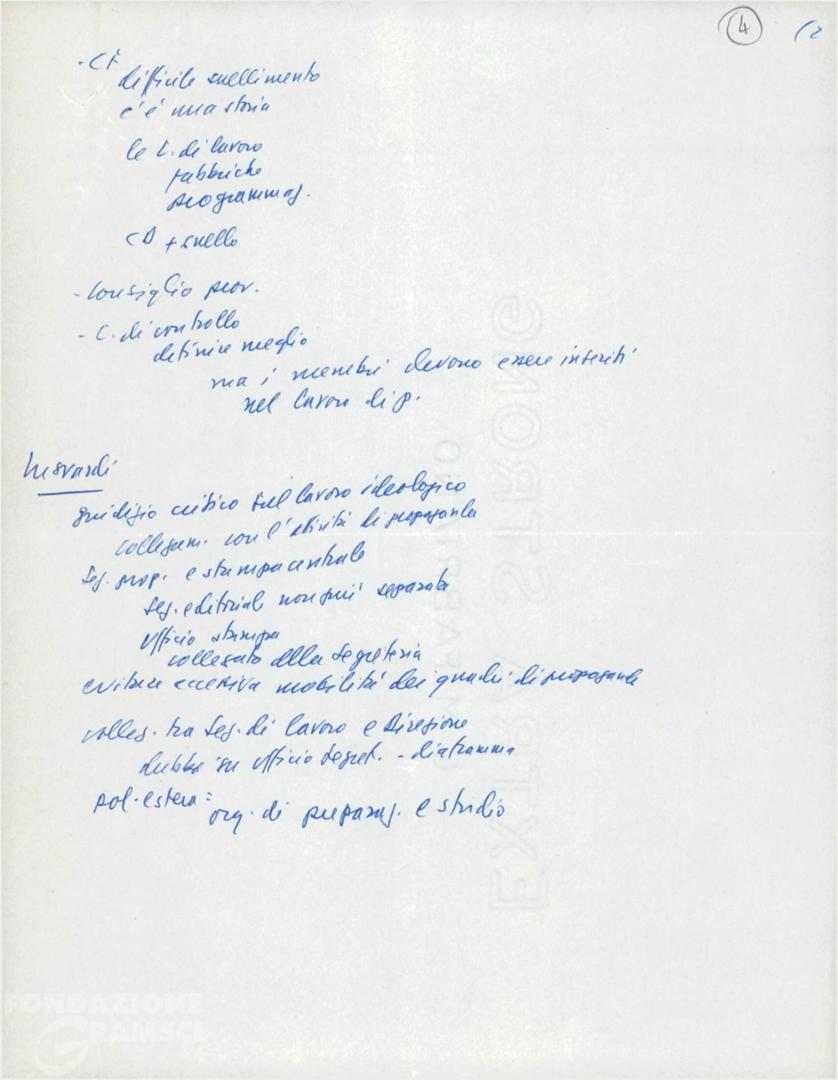 4
- CF
difficile snellimento
c'è una storia
le C. di lavoro
fabbriche
programmaz.
CD + snello
- Consiglio prov.
- C. di controllo
definire meglio
ma i membri devono essere inseriti
nel lavoro di p.
giudizio critico sul lavoro ideologico
collegam. con l'attività di propaganda
Sez. prop. e stampa centrale
Sez. editoriale non più separata
Ufficio stampa
collegato alla Segreteria
evitare eccessiva mobilità dei quadri di propaganda
colleg. tra Sez. di lavoro e Direzione
dubbi su ufficio Segret. - diaframma
pol. estera =
org. di preparaz. e studio
EXTRA STRONG
FONDAZIONE
GRAMSCI